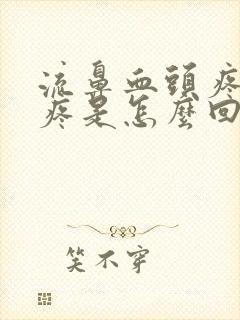 流鼻血頭疼
疼是怎麼回
笑不穿